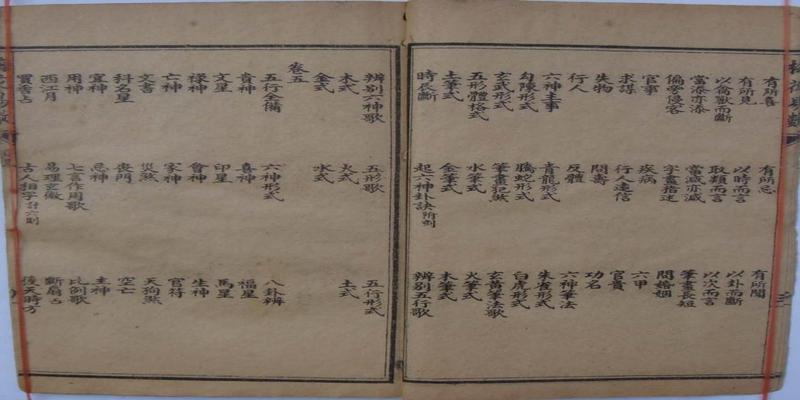 有所喜 有所忌 有所聞
有所見 以時而言 以卦而斷
以禽獸而斷 取類而言 以次而言
當添亦添 當減亦減 筆畫長短
偏旁侵客 字畫指迷 問婚姻
官事 疾病 六甲
求謀 行人遠信 官貴
失物 問壽 功名
行人 反體 六神筆法
六神主事 青龍形式 朱雀形式
勾陳形式 騰蛇形式 白虎形式
玄武形式 筆畫犯煞 玄黃筆法歌
五形體格式 水筆式 火筆式
土筆式 金筆式 木筆式
時辰斷 起六神卦訣附例 辨别五行歌
辨别六神歌 五形歌 五行形式
木式 火式 土式
金式 水式
卷五
五行全備 六神形式 八卦辨
貴神 喜神 福星
文星 印星 馬星
祿神 會神 生神
亡神 家神 官符
文書 災煞 天狗煞
科名星 喪門 空亡
宜神 忌神 主神
用神 七言作用歌 比例歌
西江月 易理玄微 斷扇占
買香占 古人相字計六則 後天時方